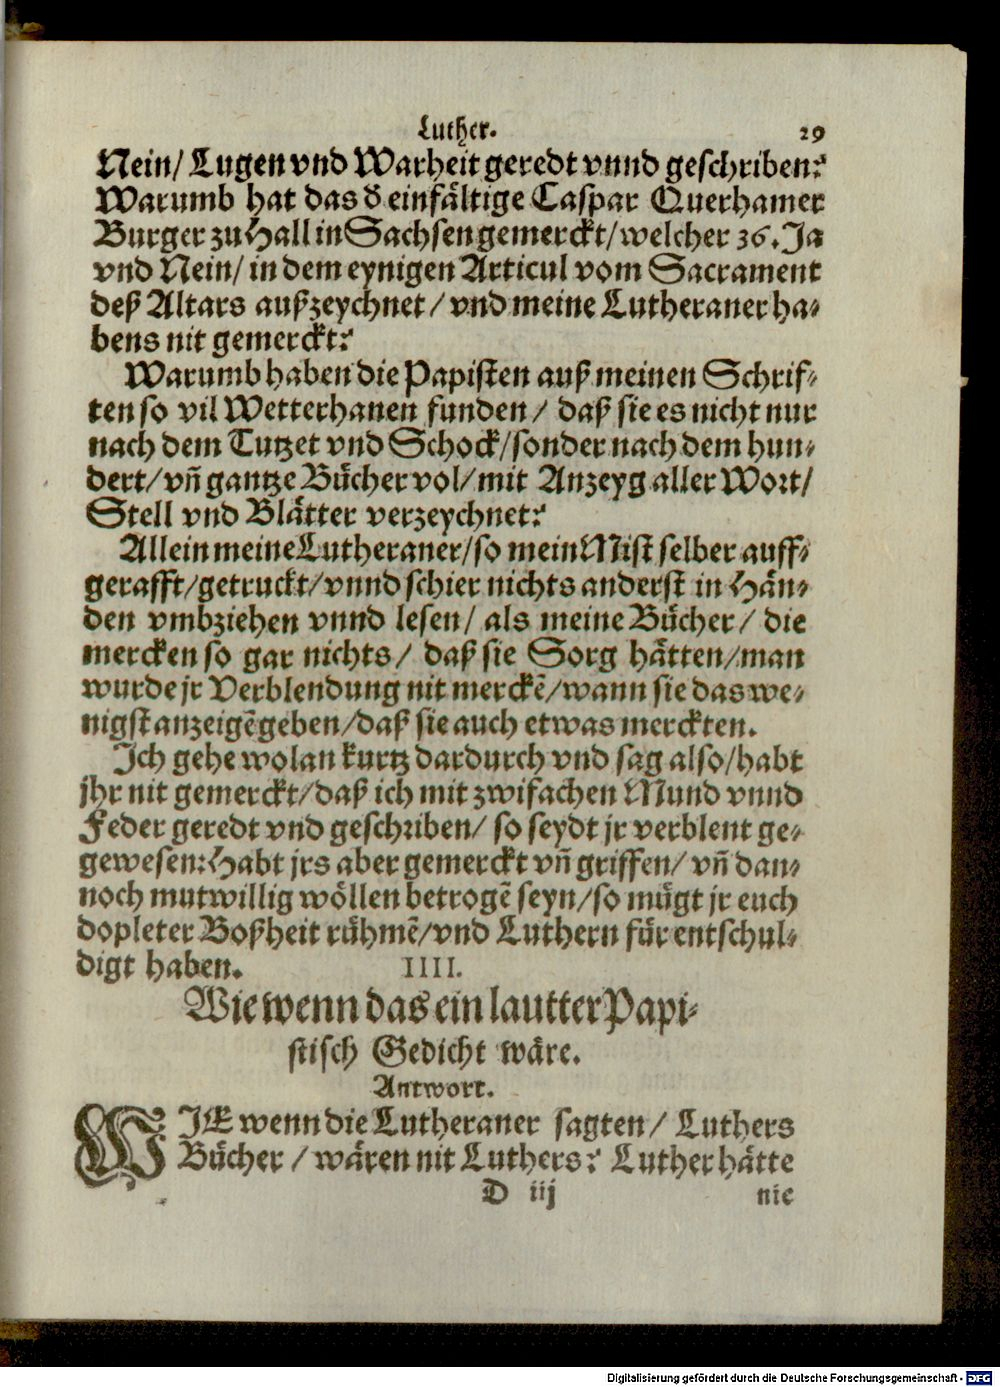 Luther. 29
Nein/ Lugen vnd Warheit geredt vnnd geschriben?
Warumb hat das d̕ einfältige Caspar Querhamer
Burger zu Hall in Sachsen gemerckt/ welcher 36. Ja
vnd Nein/ in dem eynigen Articul vom Sacrament
deß Altars außzeychnet/ vnd meine Lutheraner ha-
bens nit gemerckt?
Warumb haben die Papisten auß meinen Schrif-
ten so vil Wetterhanen funden/ daß sie es nicht nur
nach dem Tutzet vnd Schock/ sonder nach dem hun-
dert/ vñ gantze Bücher vol/ mit Anzeyg aller Wort/
Stell vnd Blätter verzeychnet?
Allein meine Lutheraner/ so mein Mist selber auff-
gerafft/ getruckt/ vnnd schier nichts anderst in Hän-
den vmbziehen vnnd lesen/ als meine Bücher/ die
mercken so gar nichts/ daß sie Sorg hätten/ man
wurde jr Verblendung nit merckē/ wann sie das we-
nigst anzeigē geben/ daß sie auch etwas merckten.
Ich gehe wolan kurtz dardurch vnd sag also/ habt
jhr nit gemerckt/ daß ich mit zwifachen Mund vnnd
Feder geredt vnd geschriben/ so seydt jr verblent ge-
gewesen: Habt jrs aber gemerckt vñ griffen/ vñ dan-
noch mutwillig wöllen betrogē seyn/ so mügt jr euch
dopleter Boßheit rühmē/ vnd Luthern für entschul-
digt haben. IIII.
Wie wenn das ein lautter Papi-
stisch Gedicht wäre.
Antwort.
WIE wenn die Lutheraner sagten/ Luthers
Bücher/ wären nit Luthers? Luther hätte
D iij nie
Digitalisierung gefördert durch die Deutsche Forschungsgemeinschaft - DFG